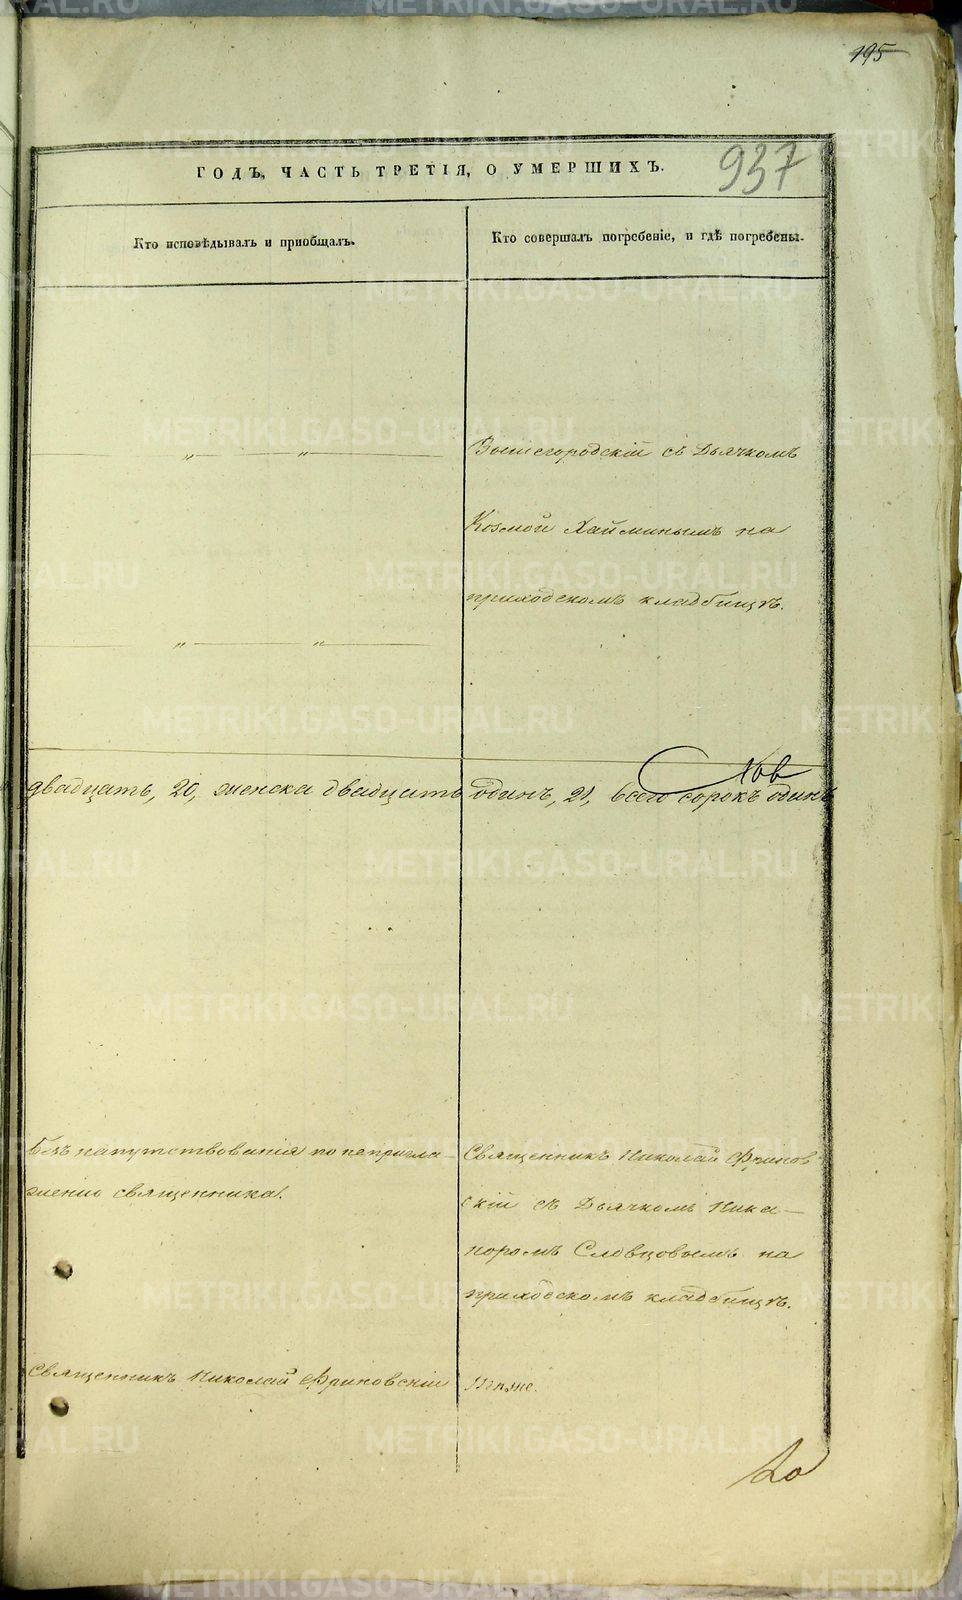 195
937
ГОДЪ, ЧАСТЬ ТРЕТІЯ, О УМЕРШИХЪ.
Кто исповѣдывалъ и пріобщалъ.
Кто совершалъ погребеніе, и гдѣ погребены.
Вышегородскій съ Дьячкомъ
Козмой Хайминымъ на
приходскомъ кладбищѣ.
двадцать, 20, женска двадцать одинъ, 21, всего сорокъ одинъ
безъ напутствованія по непригла-
шенію священника.
Священникъ Николай Флинов
скій съ Дьячкомъ Ника-
норомъ Словцовымъ на
приходскомъ кладбищѣ.
Священникъ Николай Флиновскій
Тѣ же.
METRIKI.GASO-URAL.RU